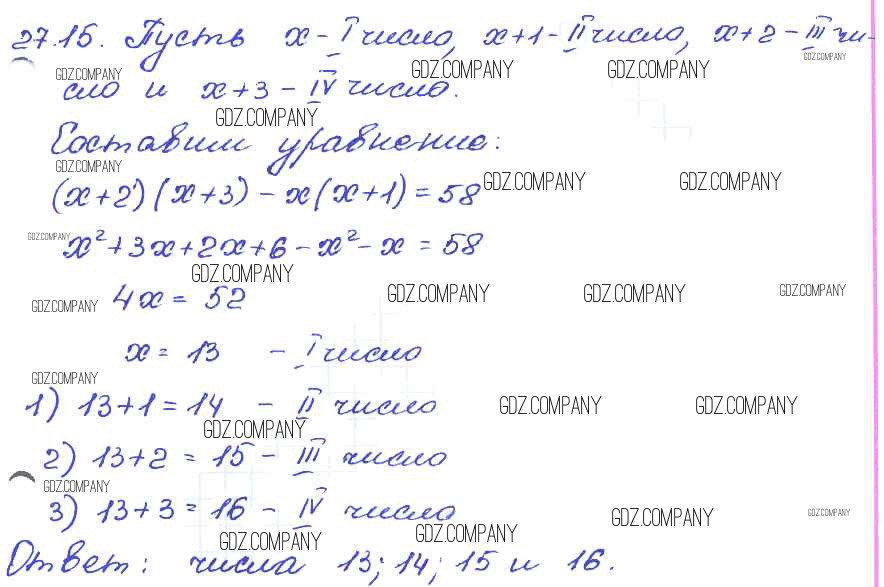 27.15. Пусть x - I число, x+1 - II число, x+2 - III чи-
GDZ.COMPANY GDZ.COMPANY GDZ.COMPANY GDZ.COMPANY
сло и x+3 - IV число.
GDZ.COMPANY
Составим уравнение:
GDZ.COMPANY
(x+2)(x+3) - x(x+1) = 58
GDZ.COMPANY GDZ.COMPANY
GDZ.COMPANY
x²+3x+2x+6-x²-x = 58
GDZ.COMPANY
4x = 52
GDZ.COMPANY GDZ.COMPANY GDZ.COMPANY GDZ.COMPANY
x = 13 - I число
GDZ.COMPANY
1) 13+1=14 - II число
GDZ.COMPANY GDZ.COMPANY
GDZ.COMPANY
2) 13+2 = 15 - III число
GDZ.COMPANY
3) 13+3 = 16 - IV число
GDZ.COMPANY GDZ.COMPANY
GDZ.COMPANY GDZ.COMPANY
Ответ: числа 13; 14; 15 и 16.